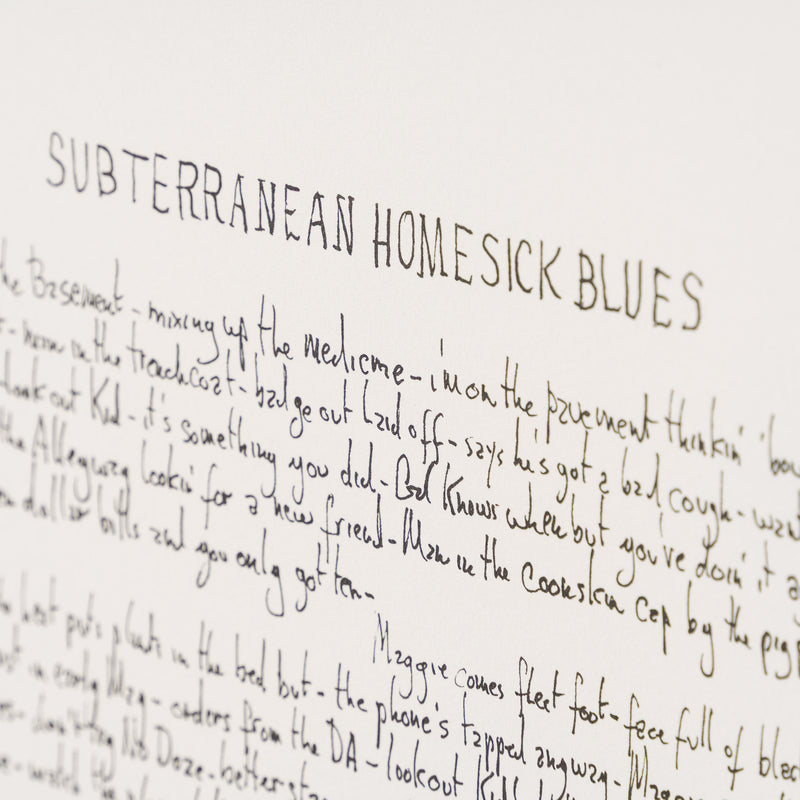 SUBTERRANEAN HOMESICK BLUES
the Basement - mixing up the medicine - i'm on the pavement thinkin' 'bou
- man in the trenchcoat - badge out laid off - says he's got a bad cough - wan
look out Kid - it's something you did - God Knows when but you're doin' it a
the Alleyway lookin' for a new friend - Man in the coonskin cap by the pig
dollar bills and you only got ten -
Maggie comes fleet foot - face full of blac
heat puts plants in the bed but - the phone's tapped anyway - Ma
in early May - orders from the DA - lookout Kid
No Doze - better sta